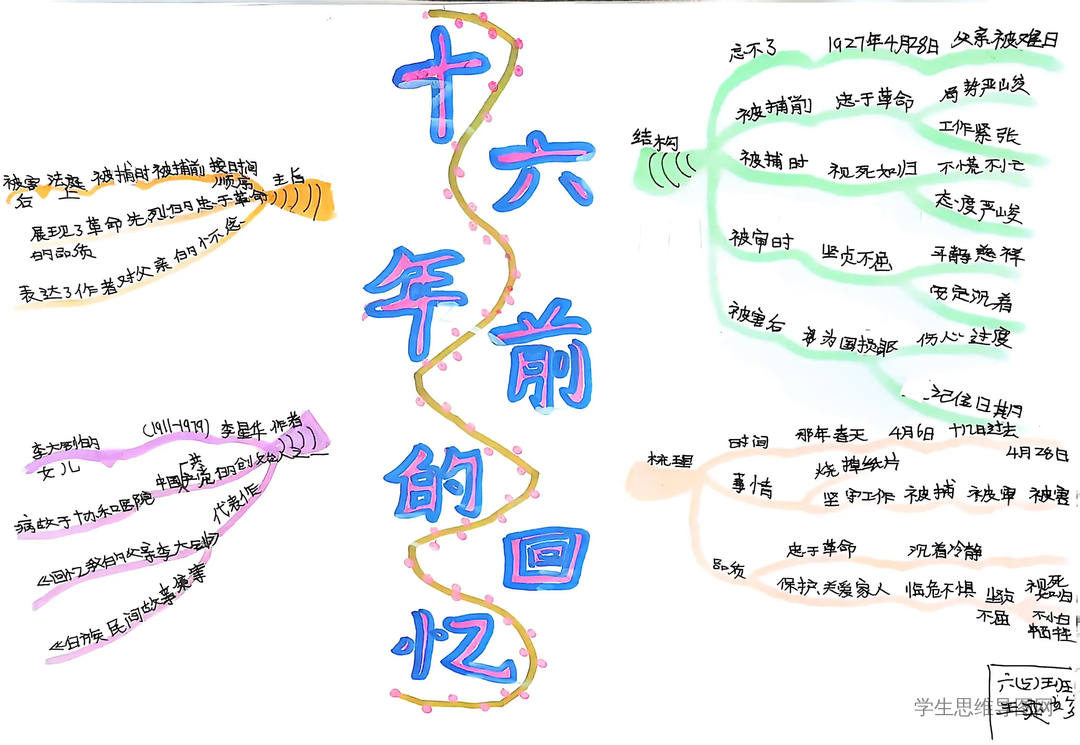 十六年前的回忆
主旨
按时间顺序
被捕前
被捕时
法庭上
被害后
展现了革命先烈们的忠于革命的品质
表达了作者对父亲的怀念
作者
李星华
(1911-1979)
李大钊的女儿
中国共产党的创始人之一
病故于协和医院
代表作
《回忆我的父亲李大钊》
《白族民间故事集等
结构
忘不了
1927年4月28日
父亲被难日
被捕前
忠于革命
局势严峻
工作紧张
被捕时
视死如归
不慌不忙
态度严峻
被审时
坚贞不屈
平静慈祥
安定沉着
被害后
伤心过度
记住日期
梳理
时间
那年春天
4月6日
十几日过去
4月28日
事情
烧掉纸片
坚守工作
被捕
被审
被害
品质
忠于革命
沉着冷静
保护、关爱家人
临危不惧
坚贞不屈
视死如归
不怕牺牲
学生思维导图网